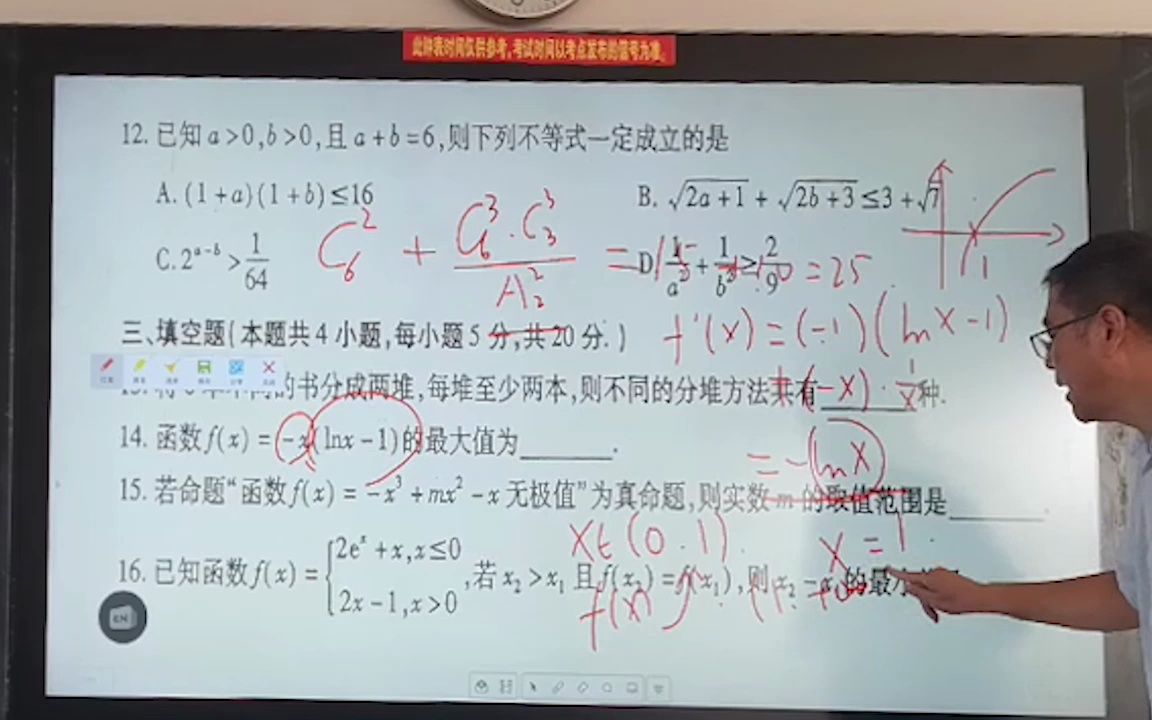 此钟表时间仅供参考，考试时间以考点发布的信号为准。
12. 已知 a>0,b>0,且 a+b=6,则下列不等式一定成立的是
A. (1+a)(1+b)≤16
B. √(2a+1) + √(2b+3) ≤3+√7
C. 2^(a-b) > 1/64
D 1/a² + 1/b² ≥ 2/9
C_6^2 + (C_6^3 · C_3^3)/A_2^2 = 15 + 10 = 25
1
三、填空题(本题共4小题,每小题5分,共20分.)
f'(x) = (-1)(lnx-1)
的书分成两堆,每堆至少两本,则不同的分堆方法共有______种.
+ (-x) · 1/x
14. 函数 f(x) = -x(lnx-1)的最大值为______.
= -(lnx)
15. 若命题“函数 f(x) = -x³+mx²-x 无极值”为真命题,则实数 m 的取值范围是______
x∈(0.1).
x=1.
16. 已知函数 f(x) = { 2e^x+x,x≤0
2x-1,x>0
,若 x₂>x₁ 且 f(x₂)=f(x₁),则 x₂-x₁的最
f(x)
EN